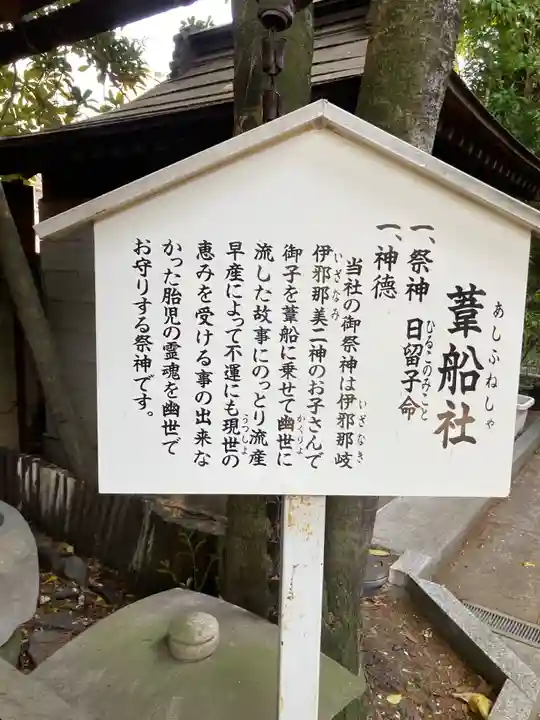 葦船社
あしぶねしゃ
一、祭神 日留子命
ひるこのみこと
一、神徳
当社の御祭神は伊邪那岐
いざなぎ
伊邪那美二神のお子さんで
いざなみ
御子を葦船に乗せて幽世に
かくりよ
流した故事にのっとり流産
早産によって不運にも現世の
うつしよ
恵みを受ける事の出来な
かった胎児の霊魂を幽世で
お守りする祭神です。